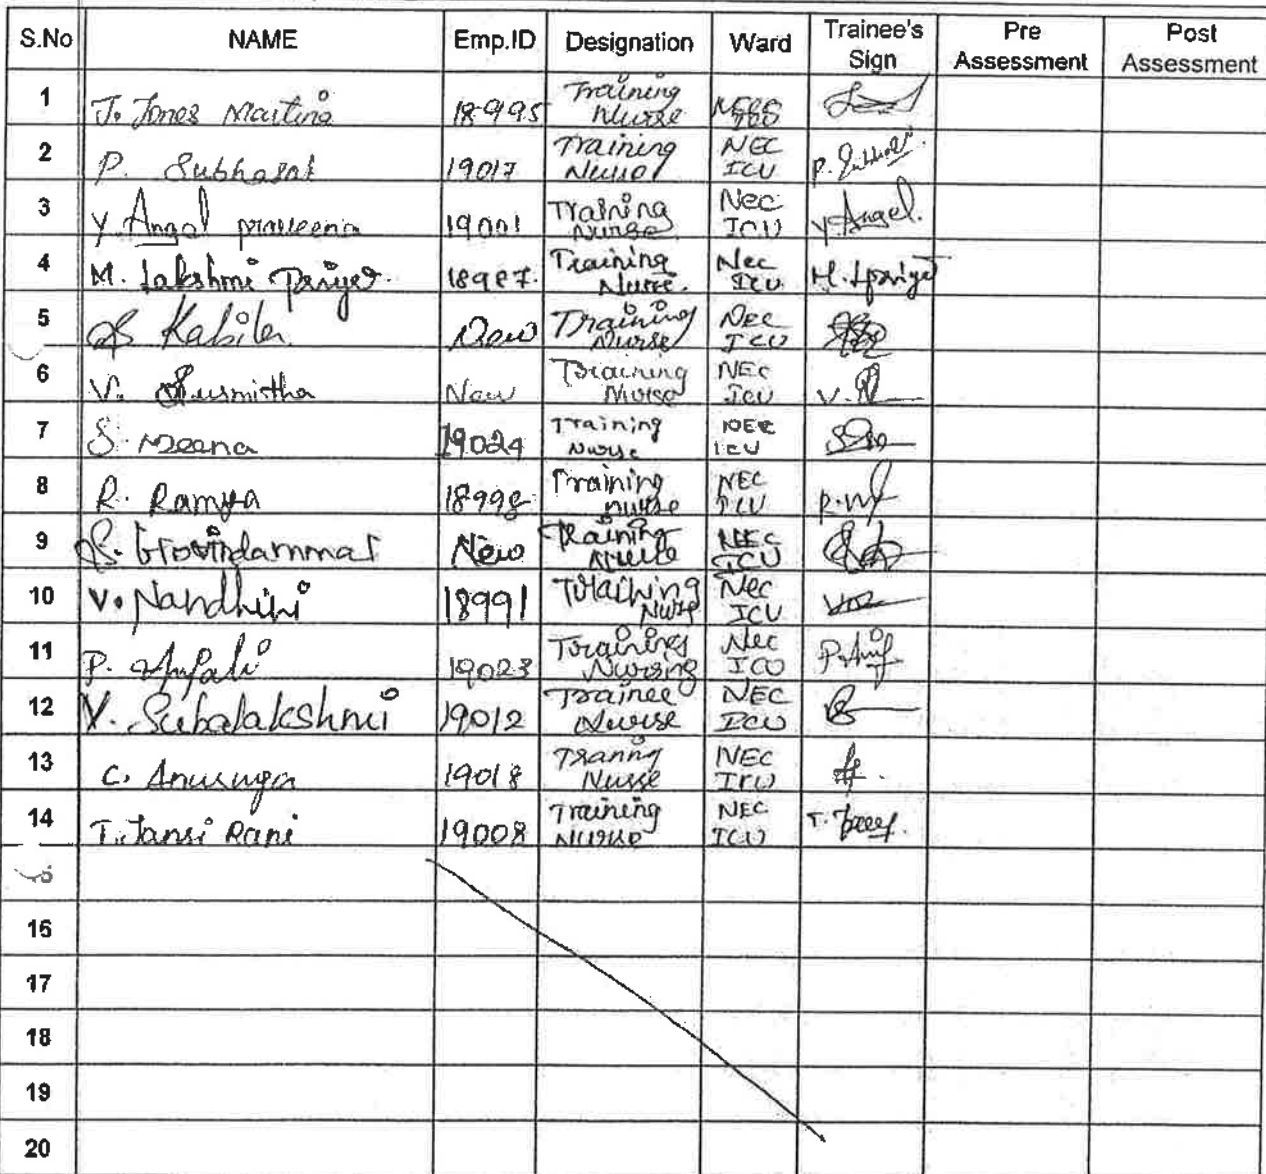 S.No NAME Emp.ID Designation Ward Trainee's Sign Pre Assessment Post Assessment
1 J. Jones Martina 18995 Training Nurse
2 P. Subhasat 19017 Training Nurse NEC ICU P.
3 Y Angal praveena 19001 Training Nurse Nec ICU Y. Angel.
4 M. Lakshmi Priya. 18987. Training Nurse. Nec ICU M. Lpriya
5 Kabila New Training Nurse Nec ICU
6 V. Susmitha New Training Nurse NEC ICU V.
7 S. Meena 19024 Training Nurse NEC ICU
8 R. Ramya 18998 Training nurse NEC ICU R.
9 S. Govindammal New Training Nurse NEC ICU
10 V. Nandhini 18991 Training Nurse Nec ICU
11 P. 19023 Training Nursing Nec ICU
12 V. Subalakshmi 19012 Trainee Nurse NEC ICU
13 C. Anusuya 19018 Tranng Nurse NEC ICU
14 T. Jansi Rani 19008 Training Nurse NEC ICU T.
16
17
18
19
20